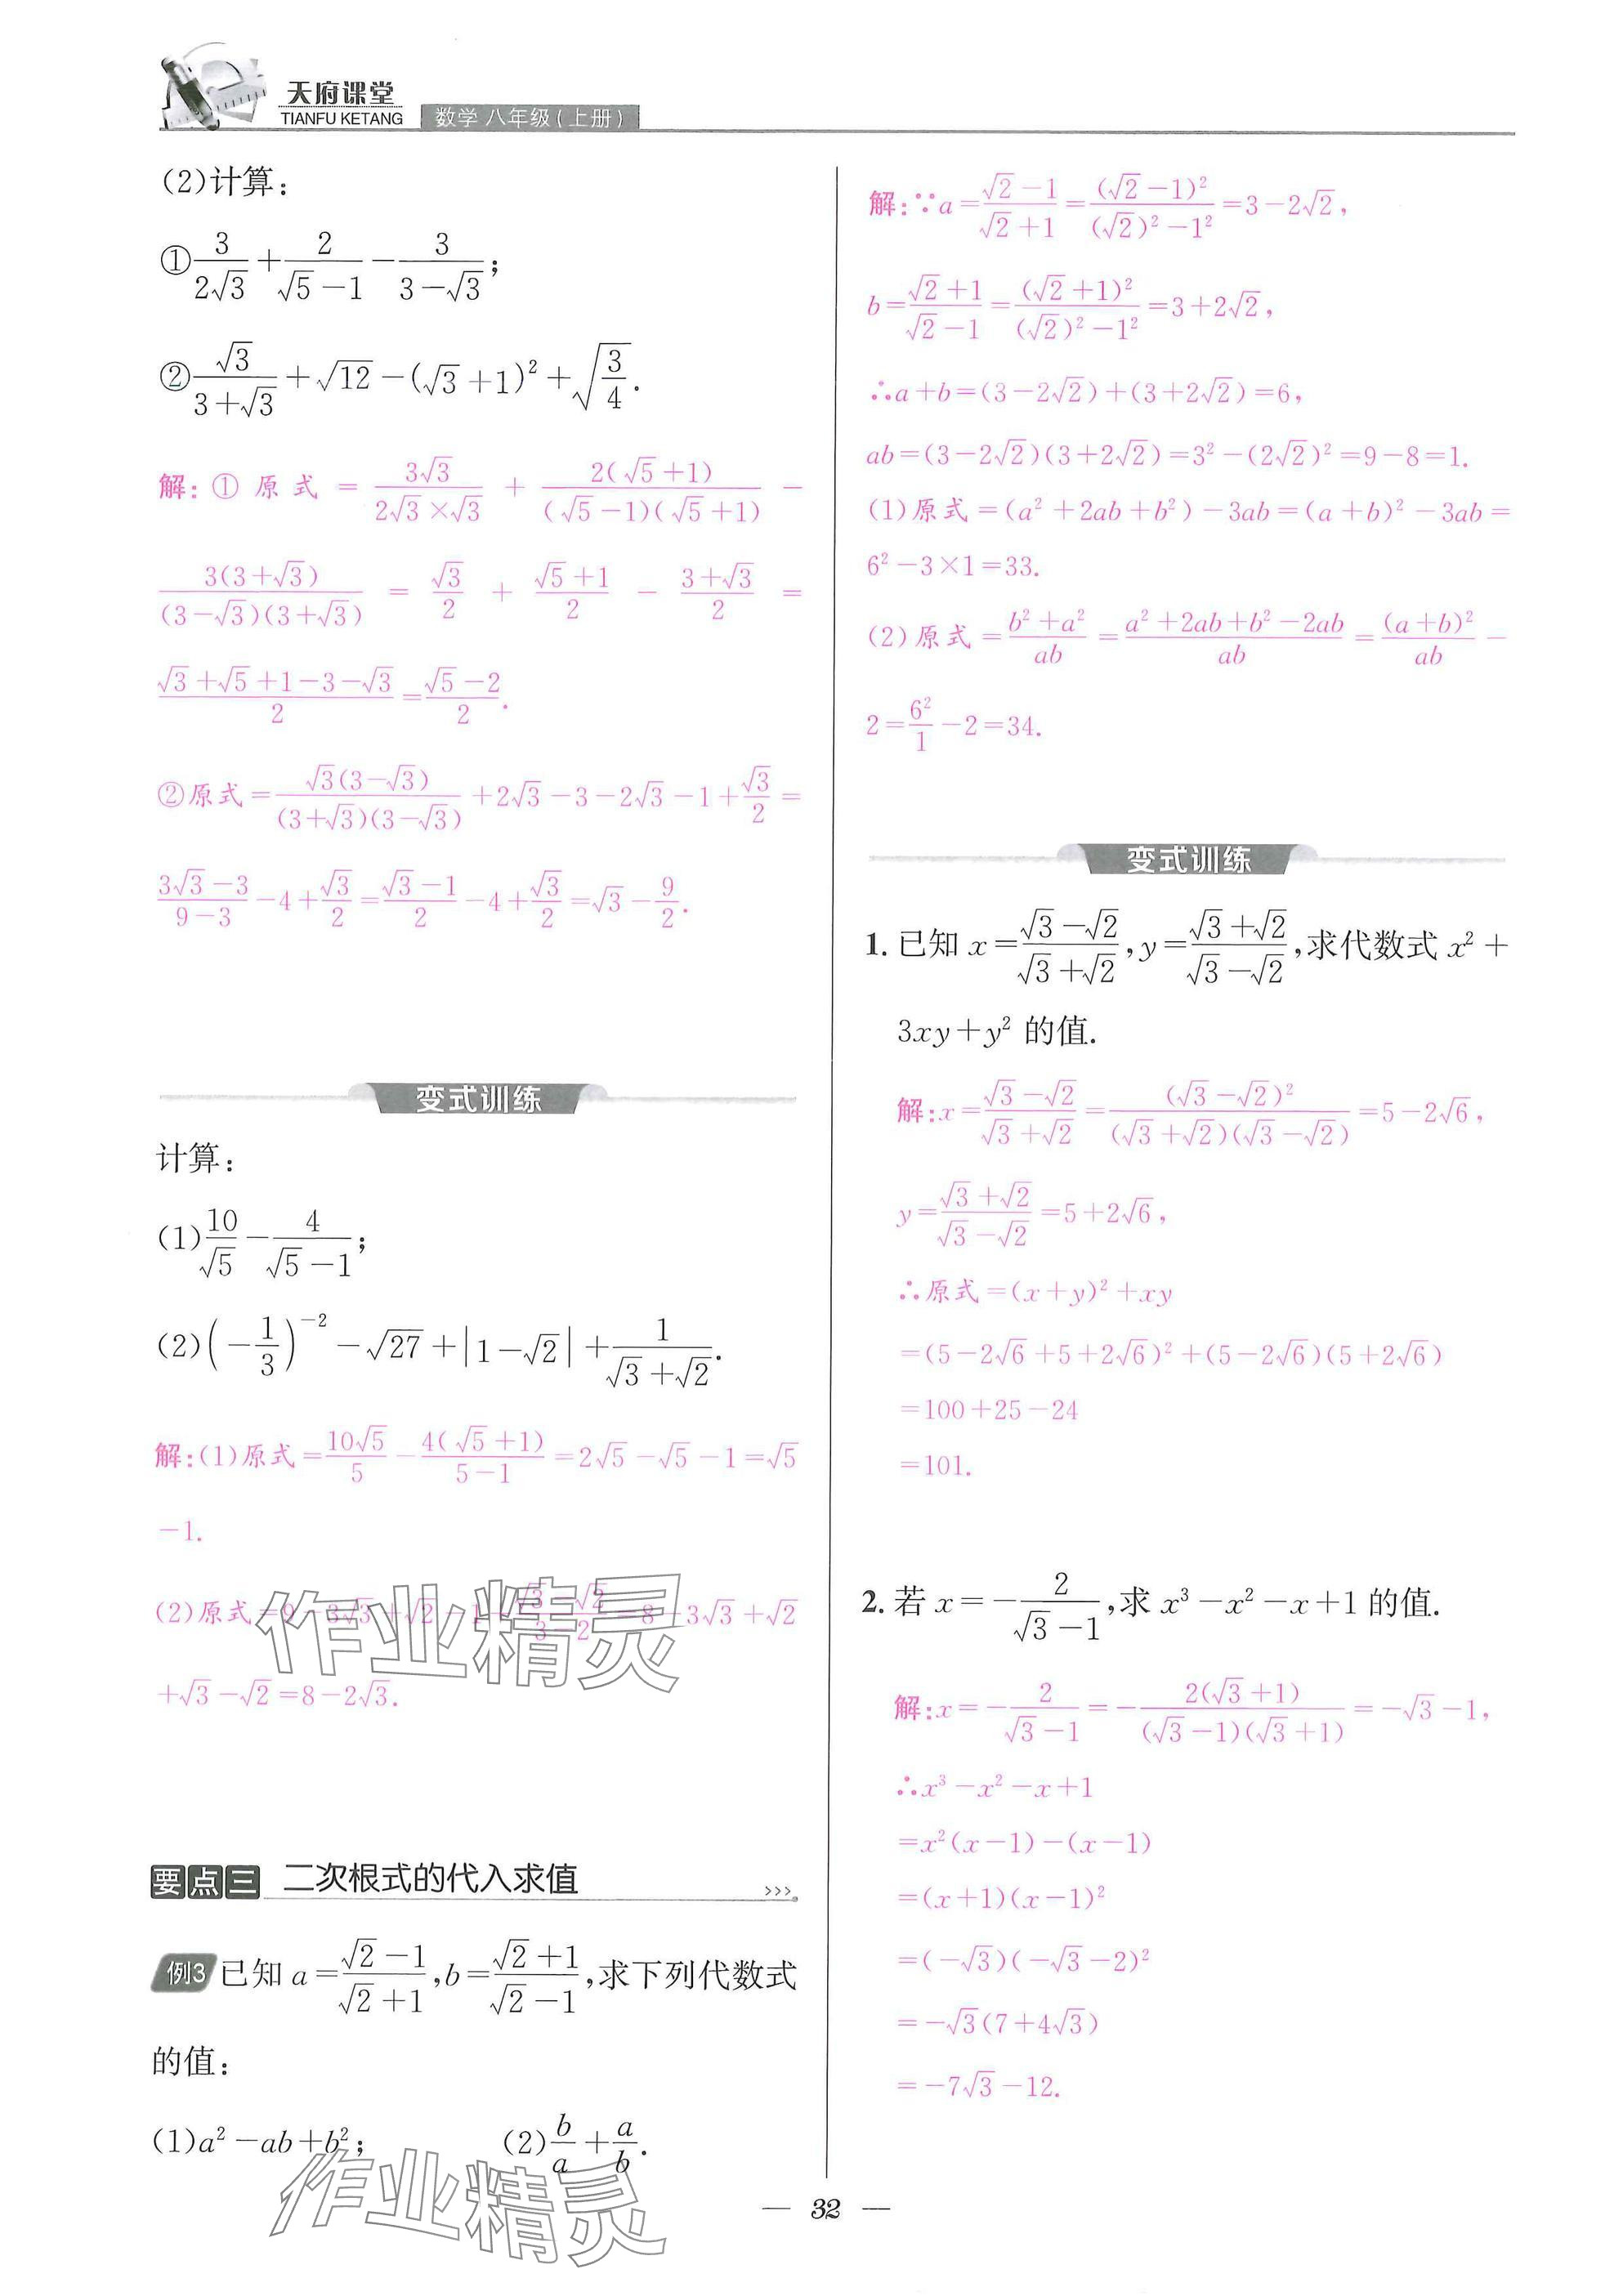 天府课堂
TIANFU KETANG
数学 八年级(上册)
(2)计算:
①3/(2√3)+2/(√5-1)-3/(3-√3);
②√3/(3+√3)+√12-(√3+1)²+√(3/4).
解:①原式=3√3/(2√3×√3)+2(√5+1)/((√5-1)(√5+1))-
3(3+√3)/((3-√3)(3+√3))=√3/2+(√5+1)/2-(3+√3)/2=
(√3+√5+1-3-√3)/2=(√5-2)/2.
②原式=√3(3-√3)/((3+√3)(3-√3))+2√3-3-2√3-1+√3/2=
(3√3-3)/(9-3)-4+√3/2=(√3-1)/2-4+√3/2=√3-9/2.
变式训练
计算:
(1)10/√5-4/(√5-1);
(2)(-1/3)⁻²-√27+|1-√2|+1/(√3+√2).
解:(1)原式=10√5/5-4(√5+1)/(5-1)=2√5-√5-1=√5
-1.
(2)原式=9-3√3+√2-1+(√3-√2)/(3-2)=8-3√3+√2
+√3-√2=8-2√3.
作业精灵
要点三 二次根式的代入求值 >>>
例3 已知a=(√2-1)/(√2+1),b=(√2+1)/(√2-1),求下列代数式
的值:
(1)a²-ab+b²; (2)b/a+a/b.
作业精灵
解:∵a=(√2-1)/(√2+1)=(√2-1)²/((√2)²-1²)=3-2√2,
b=(√2+1)/(√2-1)=(√2+1)²/((√2)²-1²)=3+2√2,
∴a+b=(3-2√2)+(3+2√2)=6,
ab=(3-2√2)(3+2√2)=3²-(2√2)²=9-8=1.
(1)原式=(a²+2ab+b²)-3ab=(a+b)²-3ab=
6²-3×1=33.
(2)原式=(b²+a²)/ab=(a²+2ab+b²-2ab)/ab=(a+b)²/ab-
2=6²/1-2=34.
变式训练
1.已知x=(√3-√2)/(√3+√2),y=(√3+√2)/(√3-√2),求代数式x²+
3xy+y²的值.
解:x=(√3-√2)/(√3+√2)=(√3-√2)²/((√3+√2)(√3-√2))=5-2√6,
y=(√3+√2)/(√3-√2)=5+2√6,
∴原式=(x+y)²+xy
=(5-2√6+5+2√6)²+(5-2√6)(5+2√6)
=100+25-24
=101.
2.若x=-2/(√3-1),求x³-x²-x+1的值.
解:x=-2/(√3-1)=-2(√3+1)/((√3-1)(√3+1))=-√3-1,
∴x³-x²-x+1
=x²(x-1)-(x-1)
=(x+1)(x-1)²
=(-√3)(-√3-2)²
=-√3(7+4√3)
=-7√3-12.
— 32 —